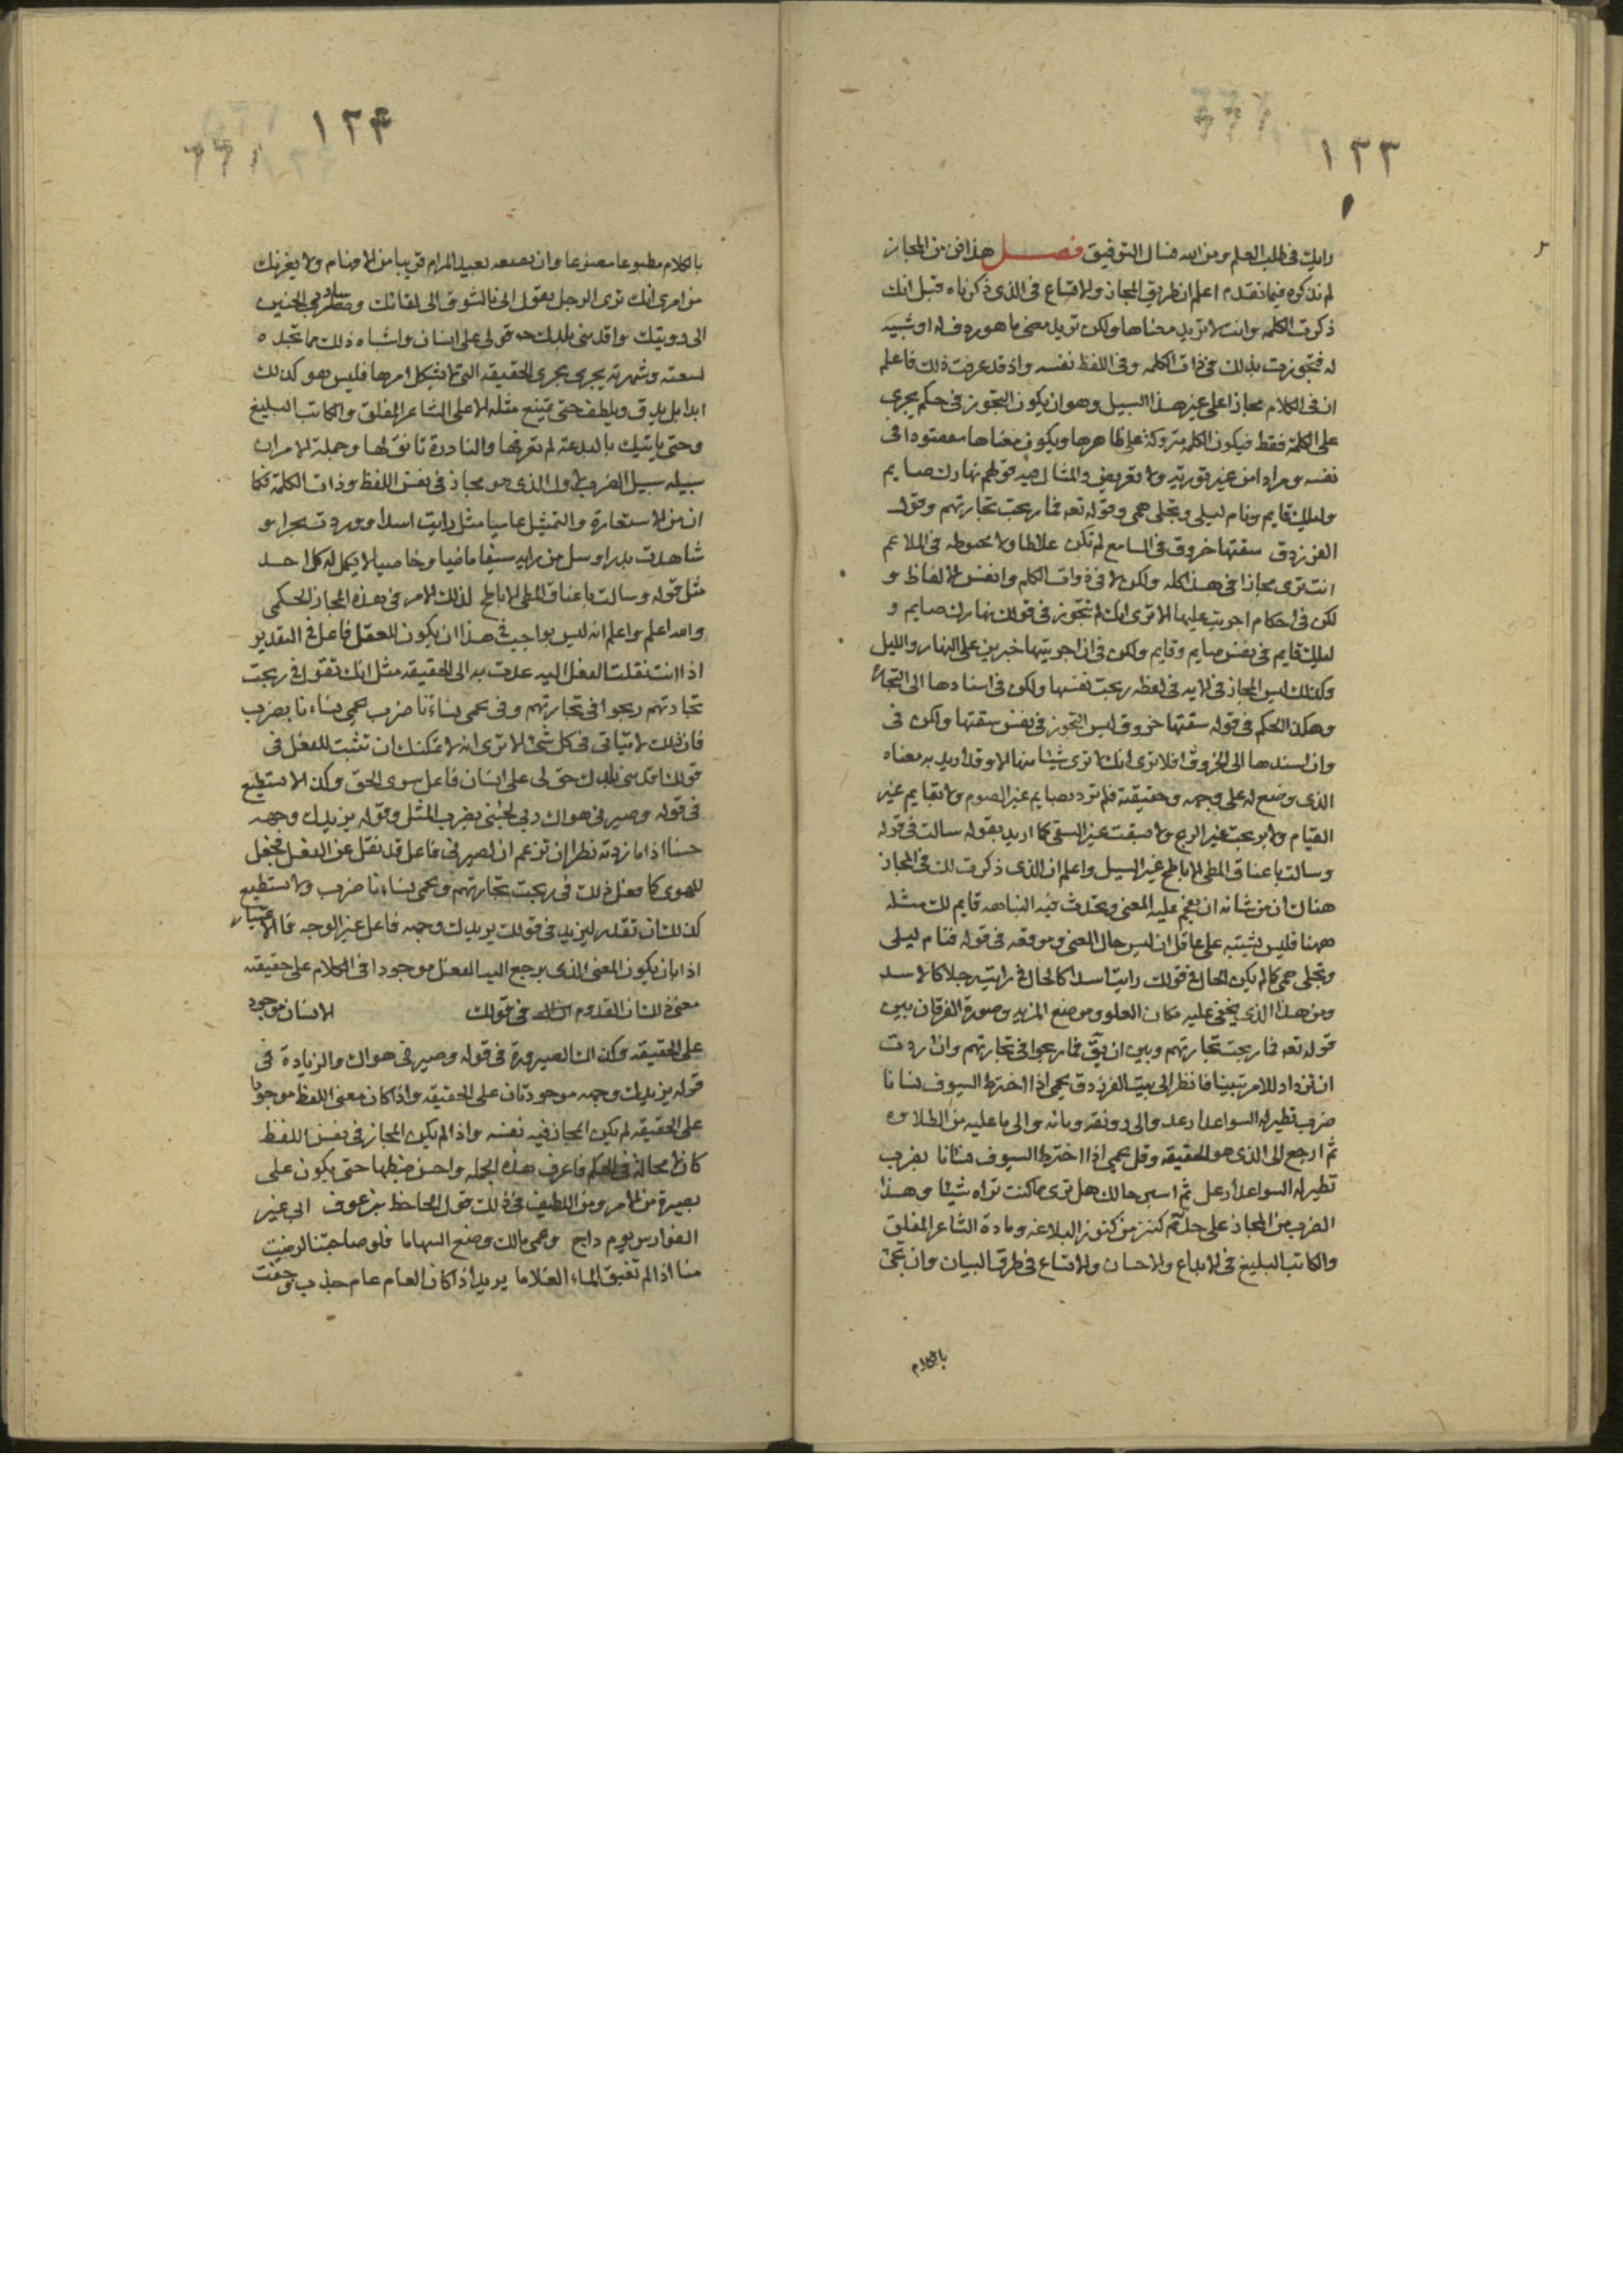 ١٢٣
رايك فى طلب العلم ومن الله نسال التوفيق فصل هذا فن من المجاز
لم نذكره فيما تقدم اعلم ان طريق المجاز والاتساع فى الذى ذكرناه قبل انك
ذكرت الكلمه وانت لا تريد معناها ولكن تريد معنى ما هو ردف له او شبيه
له فتجوزت بذلك فى ذات الكلمه وفى اللفظ نفسه واذ قد عرفت ذلك فاعلم
ان فى الكلام مجازا على غير هذا السبيل وهو ان يكون التجوز فى حكم يجرى
على الكلمة فقط فيكون الكلمه متروكة على ظاهرها ويكون معناها مقصودا فى
نفسه ومرادا من غير تورية ولا تعريض والمثال فيه قولهم نهارك صايم
وليلك قايم ونام ليلى وتجلى همى وقوله تعه فما ربحت تجارتهم وقول
الفرزدق سقتها خروق فى المسامع لم تكن علاطا ولا مخبوطه فى الملاغم
انت ترى مجازا فى هذا كله ولكن لا فى ذوات الكلم وانفس الالفاظ و
لكن فى احكام اجريت عليها الا ترى انك لم تتجوز فى قولك نهارك صايم و
ليلك قايم فى نفس صايم وقايم ولكن فى ان اجريتها خبرين على النهار والليل
وكذلك ليس المجاز فى الايه فى لفظه ربحت نفسها ولكن فى اسنادها الى التجارة
وهكذا الحكم فى قوله سقتها خروق ليس التجوز فى نفس سقتها ولكن فى
وان اسندها الى الخروق افلا ترى انك لا ترى شيئا منها الا وقد اريد به معناه
الذى وضع له على وجهه وحقيقته فلم ترد بصايم غير الصوم ولا بقايم غير
القيام ولا بربحت غير الربح ولا بسقت غير السقى كما اريد بقوله سالت فى قوله
وسالت باعناق المطى الاباطح غير السيل واعلم ان الذى ذكرت لك فى المجاز
هناك ان من شانه ان يفخم عليه المعنى ويحدث فيه النباهه قايم لك مثله
ههنا فليس يشتبه على عاقل ان ليس حال المعنى وموقعه فى قوله فنام ليلى
وتجلى همى كما لم يكن الحال فى قولك رايت اسدا كالحال فى رايت رجلا كالاسد
ومن هذا الذى يخفى عليه مكان العلو وموضع المزيه وصورة الفرقان بين
قوله تعه فما ربحت تجارتهم وبين ان يقَ فما ربحوا فى تجارتهم وان اردت
ان تزداد للامر تبينا فانظر الى بيت الفرزدق يحمى اذا اخترط السيوف نسانا
ضرب تطير له السواعد ارعل والى رونقه ومائه والى ما عليه من الطلاوه
ثم ارجع الى الذى هو الحقيقه وقل يحمى اذا اخترط السيوف نسانا بضرب
تطير له السواعد ارعل ثم اسبر حالك هل ترى مما كنت تراه شيئا وهذا
الضرب من المجاز على حدته كنز من كنوز البلاغه ومادة الشاعر المفلق
والكاتب البليغ فى الابداع والاحسان والاتساع فى طرق البيان وان يجئ
بالكلام
١٢۴
بالكلام مطبوعا مصنوعا وان يضعه بعيد المرام قريبا من الافهام ولا يغرنك
من امرى انك ترى الرجل يقول اتى بى الشوق الى لقائك وسار بى الحنين
الى رويتك واقدمنى بلدك حق لى على انسان واشباه ذلك مما تجده
لسعته وشهرته يجرى مجرى الحقيقه التى لا يشكل امرها فليس هو كذلك
ابدا بل يدق ويلطف حتى يمتنع مثله الا على الشاعر المفلق والكاتب البليغ
وحتى ياتيك بالبدعة لم تعرفها والنادرة تانق لها وجملة الامر ان
سبيله سبيل الضرب الاول الذى هو مجاز فى نفس اللفظ وذات الكلمة فكما
ان من الاستعارة والتمثيل عاميا مثل رايت اسدا ووردت بحرا و
شاهدت بدرا وسل من رايه سيفا ماضيا وخاصيا لا يكمل له كل احد
مثل قوله وسالت باعناق المطى الاباطح كذلك الامر فى هذه المجاز الحكمى
والله اعلم واعلم انه ليس بواجب فى هذا ان يكون للفعل فاعل فى التقدير
اذا انت نقلت الفعل اليه عدت به الى الحقيقه مثل انك تقول فى ربحت
تجارتهم ربحوا فى تجارتهم وفى يحمى نساءنا ضرب يحمى نساءنا بضرب
فان ذلك لا يتاتى فى كل شئ الا ترى انه لا يمكنك ان تثبت للفعل فى
قولك اقدمنى بلدك حق لى على انسان فاعل سوى الحق وكذا لا تستطيع
فى قوله وصيرنى هواك وبى لحينى يضرب المثل وقوله يزيدك وجهه
حسنا اذا ما زدته نظرا ان تزعم ان لصيرنى فاعل قد نقل عن الفعل فجعل
للهوى كما فعل ذلك فى ربحت تجارتهم ويحمى نساءنا ضرب ولا تستطيع
كذلك ان تقدر ليزيد فى قولك يزيدك وجهه فاعل غير الوجه فالاعتبار
اذا بان يكون المعنى الذى يرجع اليه الفعل موجودا فى الكلام على حقيقته
معنى ذلك ان القدوم فى قولك الانسان موجود
على الحقيقه وكذلك الصيرورة فى قوله وصيرنى هواك والزيادة فى
قوله يزيدك وجهه موجودتان على الحقيقه واذا كان معنى اللفظ موجودا
على الحقيقه لم يكن المجاز فيه نفسه واذا لم يكن المجاز فى نفس اللفظ
كان لا محالة فى الحكم فاعرف هذه الجمله واحسن ضبطها حتى يكون على
بصيرة من الامر ومن اللطيف فى ذلك قول الحاحظ بن عوف ابى غير
الفوارس يوم داج وعمى مالك وضع السهاما فلو صاحبتنا لرضيت
منا اذا لم تغبق الماء الغلاما يريد اذا كان العام عام جدب وجفت